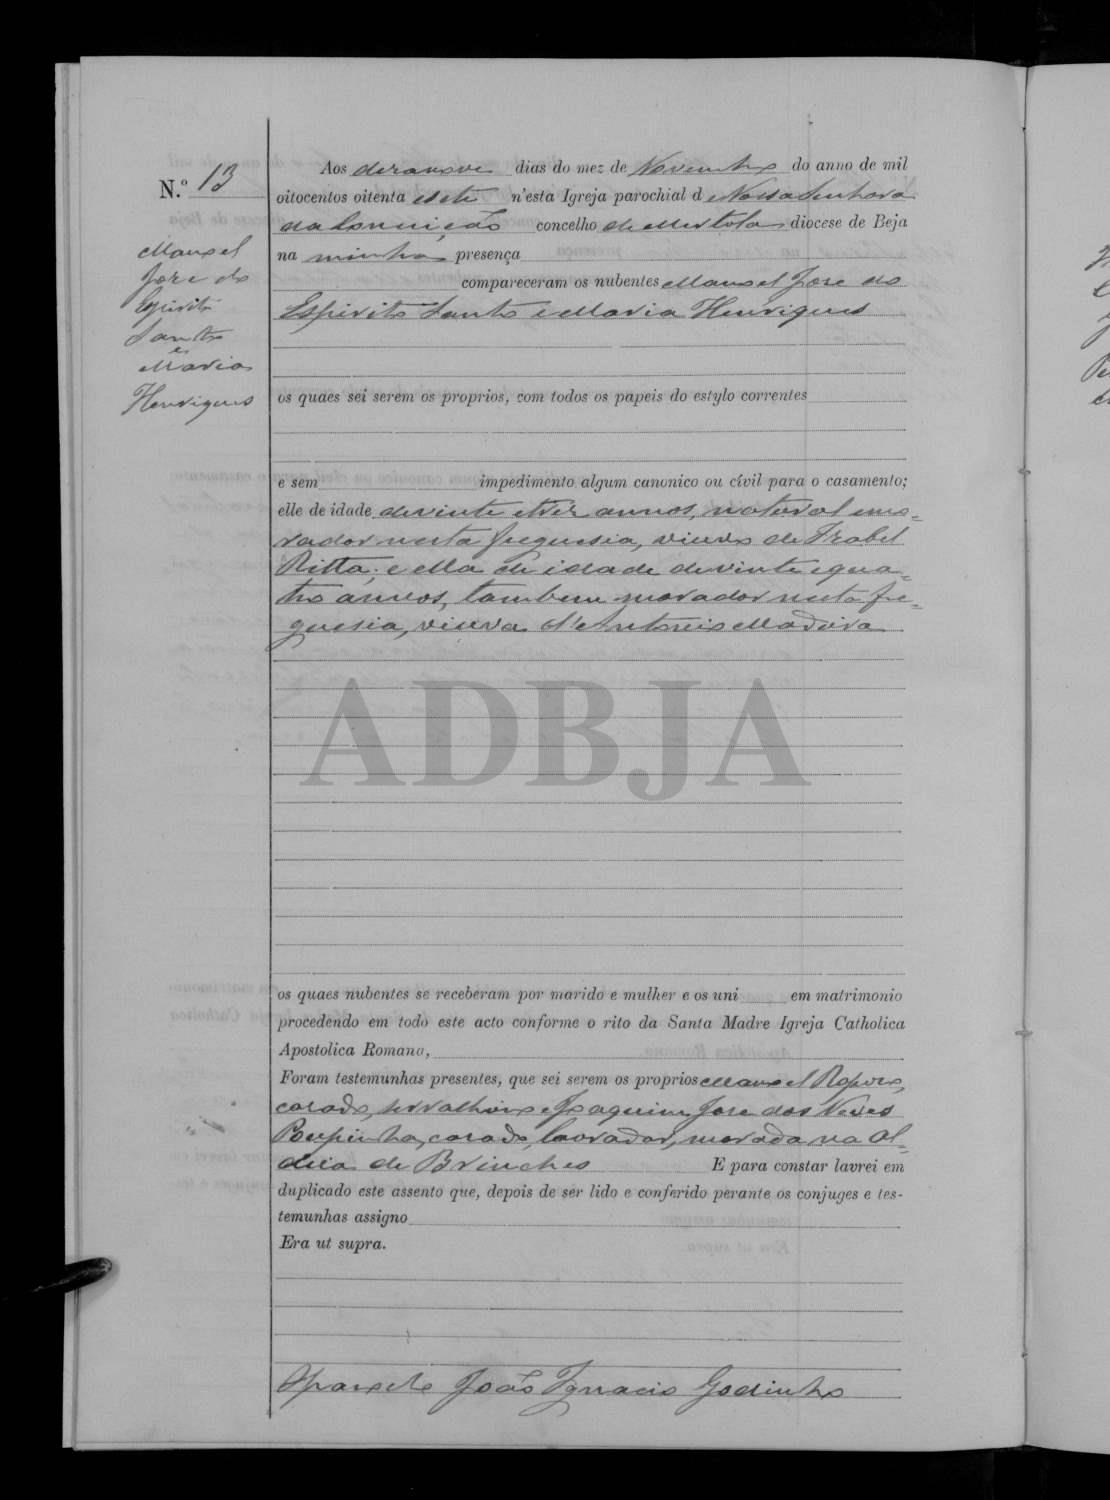 N.º 13
Manoel
Jose do
Espirito
Santo
e
Maria
Henriques
Aos desanove dias do mez de Novembro do anno de mil
oitocentos oitenta e sete n'esta Igreja parochial d e Nossa Senhora
da Conceição concelho de Mertola diocese de Beja
na minha presença
compareceram os nubentes Manoel Jose do
Espirito Santo e Maria Henriques
os quaes sei serem os proprios, com todos os papeis do estylo correntes
e sem impedimento algum canonico ou cívil para o casamento;
elle de idade de vinte e trez annos, natural e mo-
rador nesta freguesia, viuvo de Izabel
Ritta; e ella de idade de vinte e qua-
tro annos, tambem morador nesta fre-
guesia, viuva d'Antonio Madeira
ADBJA
os quaes nubentes se receberam por marido e mulher e os uni em matrimonio
procedendo em todo este acto conforme o rito da Santa Madre Igreja Catholica
Apostolica Romana,
Foram testemunhas presentes, que sei serem os proprios Manoel Raposo,
casado, e Joaquim Jose dos Neves
casado, lavrador, morada na Al-
deia de Brinches E para constar lavrei em
duplicado este assento que, depois de ser lido e conferido perante os conjuges e tes-
temunhas assigno
Era ut supra.
João Ignacio Godinho